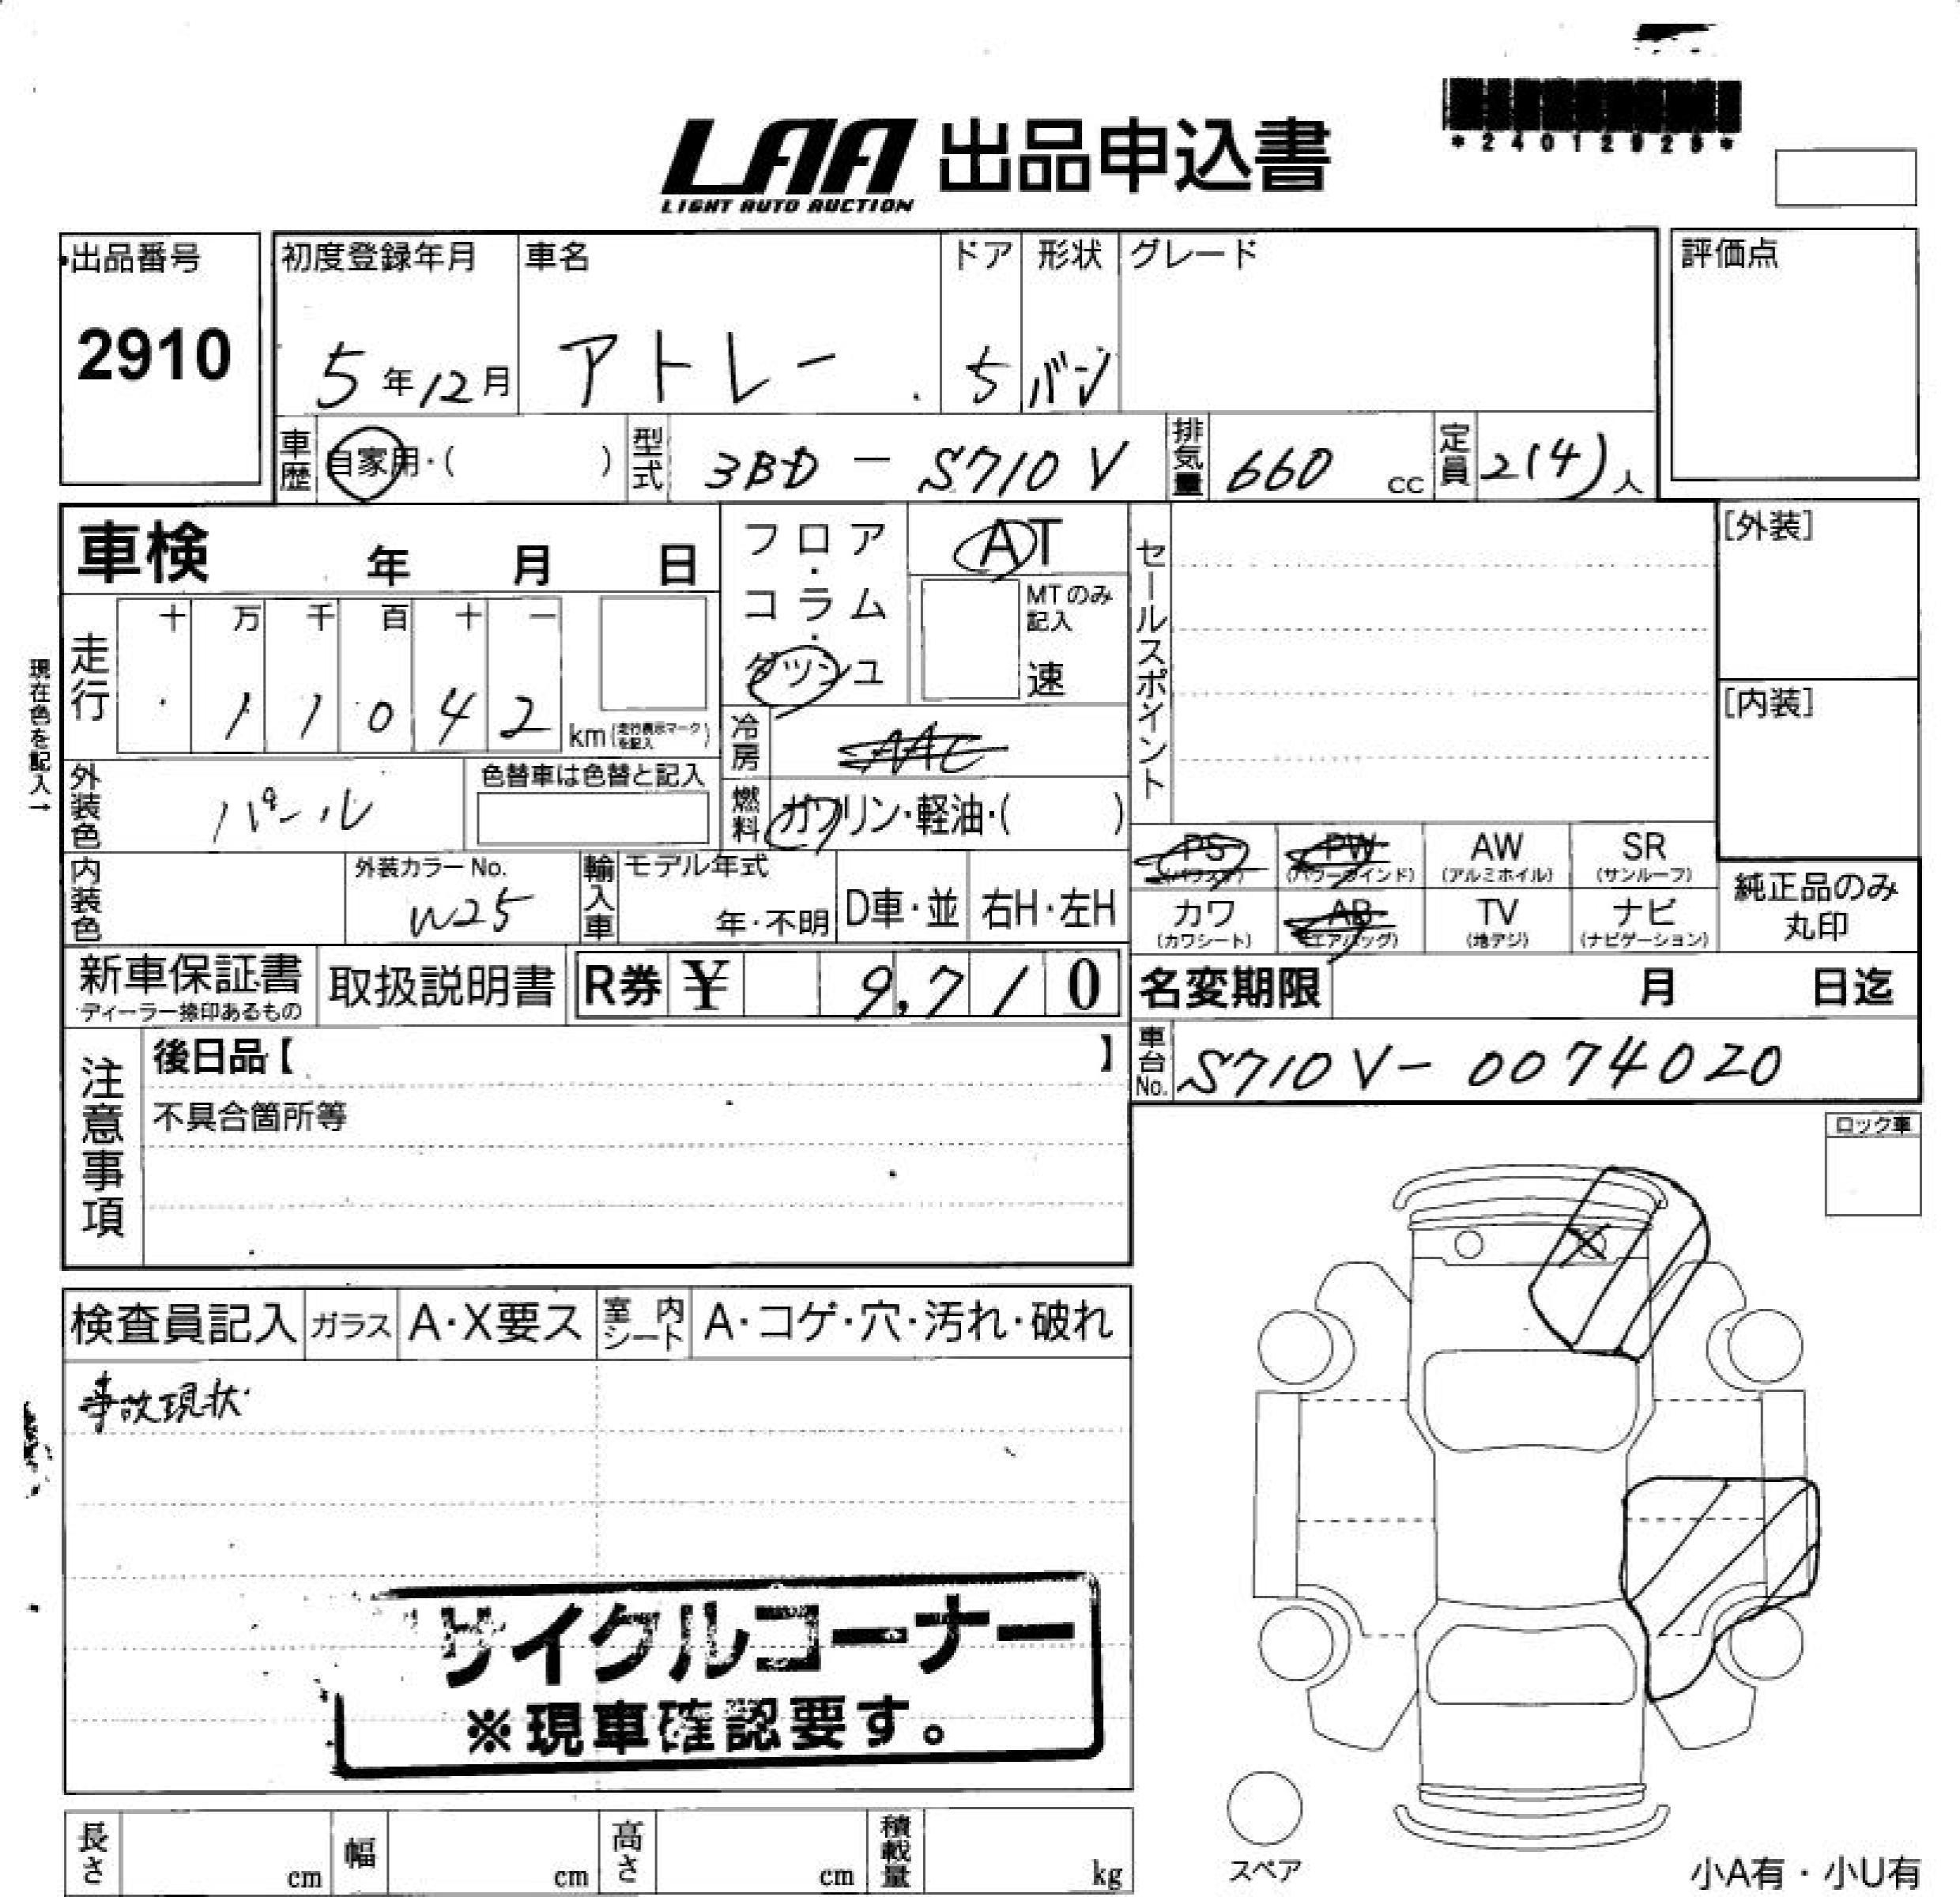 *24012925*
LAA 出品申込書
LIGHT AUTO AUCTION
出品番号 2910
初度登録年月 5年12月
車名 アトレー
ドア 5
形状 バン
グレード
評価点
車歴 自家用・( )
型式 3BD-S710V
排気量 660 cc
定員 2(4)人
車検 年 月 日
フロア・コラム・ダッシュ
AT
MTのみ記入
速
セールスポイント
[外装]
[内装]
現在色を記入→
走行 十 万 千 百 十 一
11042 km(走行表示マークを記入)
冷房 AAC
燃料 ガソリン・軽油・( )
外装色 パール
色替車は色替と記入
内装色
外装カラーNo. W25
輸入車 モデル年式 年・不明
D車・並 右H・左H
PS(パワステ) PW(パワーウインド) AW(アルミホイル) SR(サンルーフ)
カワ(カワシート) AB(エアバッグ) TV(地デジ) ナビ(ナビゲーション)
純正品のみ丸印
新車保証書
ディーラー捺印あるもの
取扱説明書
R券 ¥ 9,710
名変期限 月 日迄
車台No. S710V-0074020
注意事項
後日品【 】
不具合箇所等
ロック車
検査員記入 ガラス A・X要ス 室内シート A・コゲ・穴・汚れ・破れ
事故現状
サイクルコーナー
※現車確認要す。
長さ cm 幅 cm 高さ cm 積載量 kg
スペア
小A有・小U有